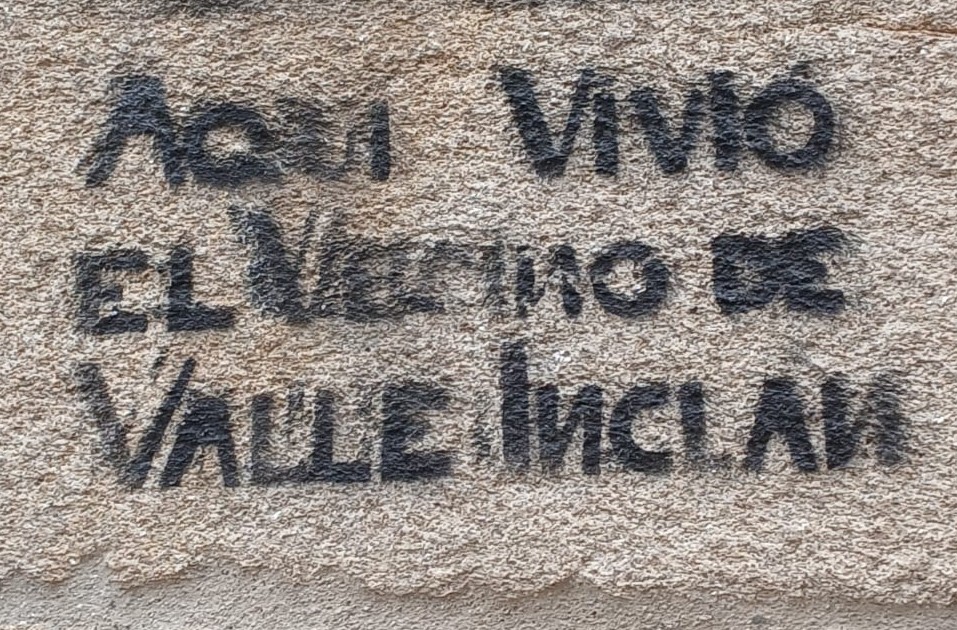 AQUI VIVIÓ
EL VECINO DE
VALLE INCLAN